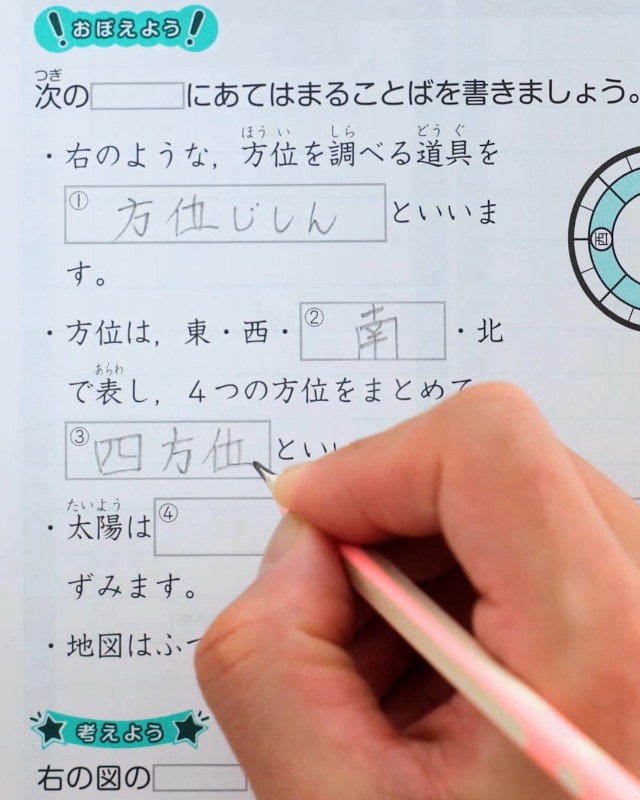 ！おぼえよう！
次の□にあてはまることばを書きましょう。
・右のような，方位を調べる道具を
①方位じしん といいま
す。
・方位は，東・西・②南・北
で表し，4つの方位をまとめて
③四方位 といい
・太陽は④
ずみます。
・地図はふつ
考えよう
右の図の
西